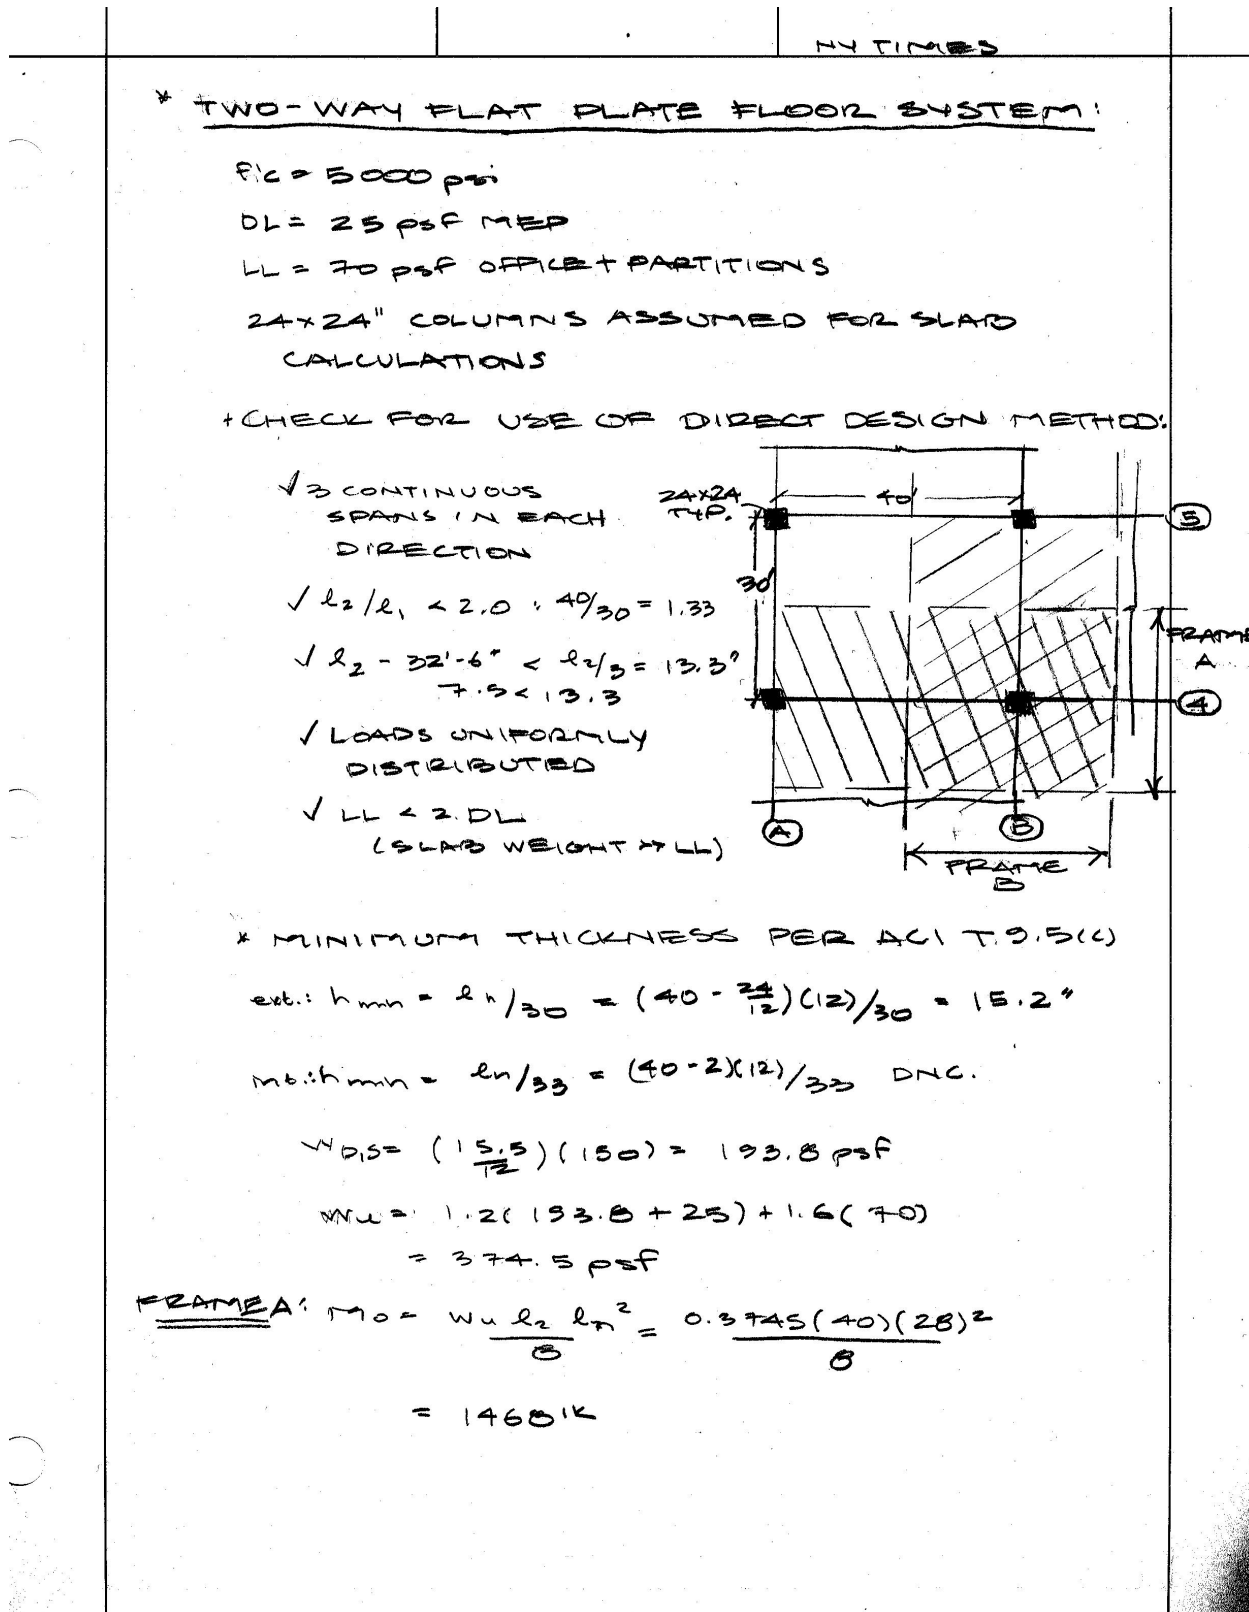 NY TIMES
* TWO-WAY FLAT PLATE FLOOR SYSTEM:
f'c = 5000 psi
DL = 25 psf MEP
LL = 70 psf OFFICE + PARTITIONS
24x24" COLUMNS ASSUMED FOR SLAB
CALCULATIONS
+ CHECK FOR USE OF DIRECT DESIGN METHOD:
√ 3 CONTINUOUS
SPANS IN EACH
DIRECTION
√ l2/l1 < 2.0 : 40/30 = 1.33
√ l2 - 32'-6" < l2/3 = 13.3'
7.5 < 13.3
√ LOADS UNIFORMLY
DISTRIBUTED
√ LL < 2.DL
(SLAB WEIGHT >> LL)
24x24
TYP.
40'
30'
5
4
FRAME
A
A
B
FRAME
B
* MINIMUM THICKNESS PER ACI T.9.5(c)
ext.: hmin = ln/30 = (40 - 24/12)(12)/30 = 15.2"
int.: hmin = ln/33 = (40-2)(12)/33 DNC.
WD,S = (15.5/12)(150) = 193.8 psf
Wu = 1.2(193.8 + 25) + 1.6(70)
= 374.5 psf
FRAME A: Mo = Wu l2 ln²/8 = 0.3745(40)(28)²/8
= 1468 'K